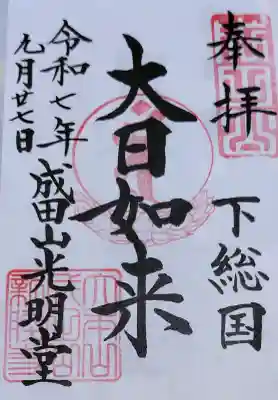 奉拝
下総国
大日如来
成田山光明堂
令和七年
九月廿七日